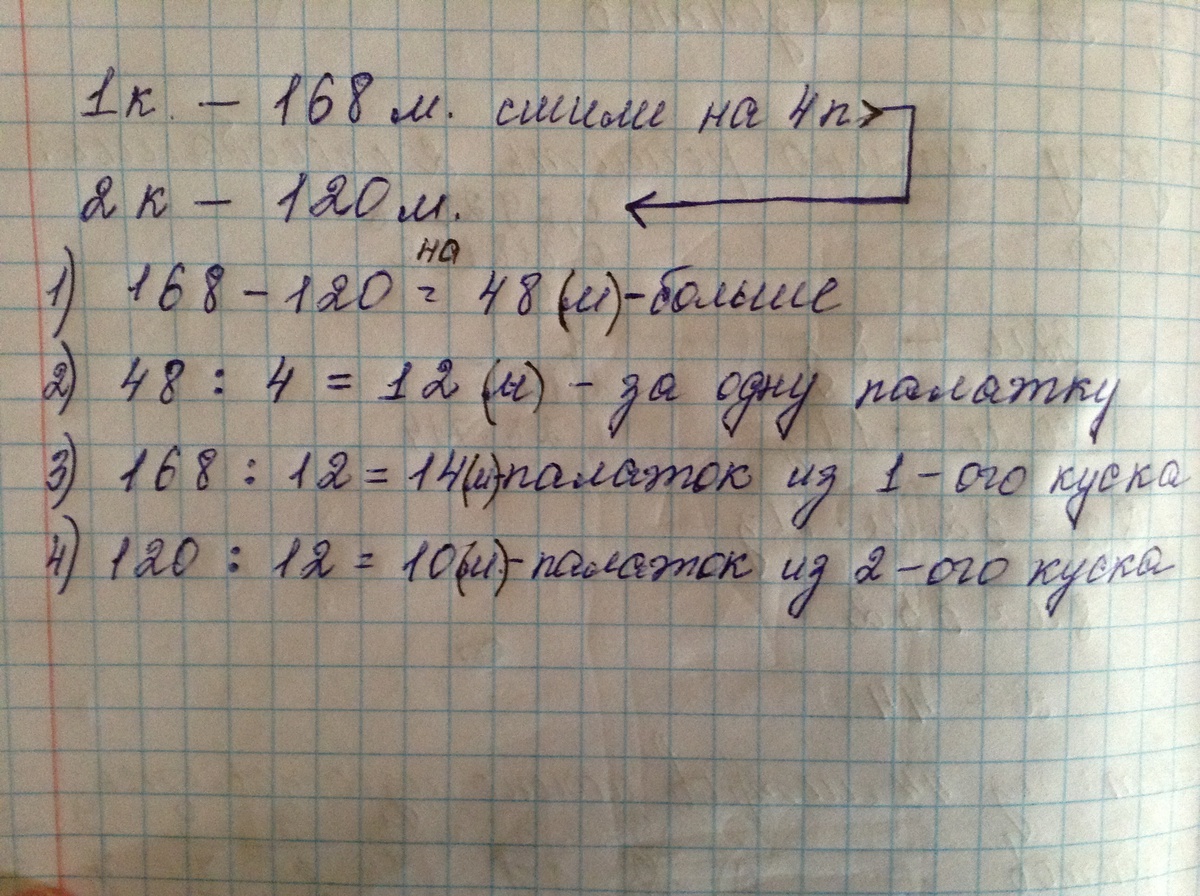 1к. - 168 м. сшили на 4п>
2к - 120м.
1) 168 - 120 = на 48 (м) - больше
2) 48 : 4 = 12 (м) - за одну палатку
3) 168 : 12 = 14(м)-палаток из 1-ого куска
4) 120 : 12 = 10(м)-палаток из 2-ого куска